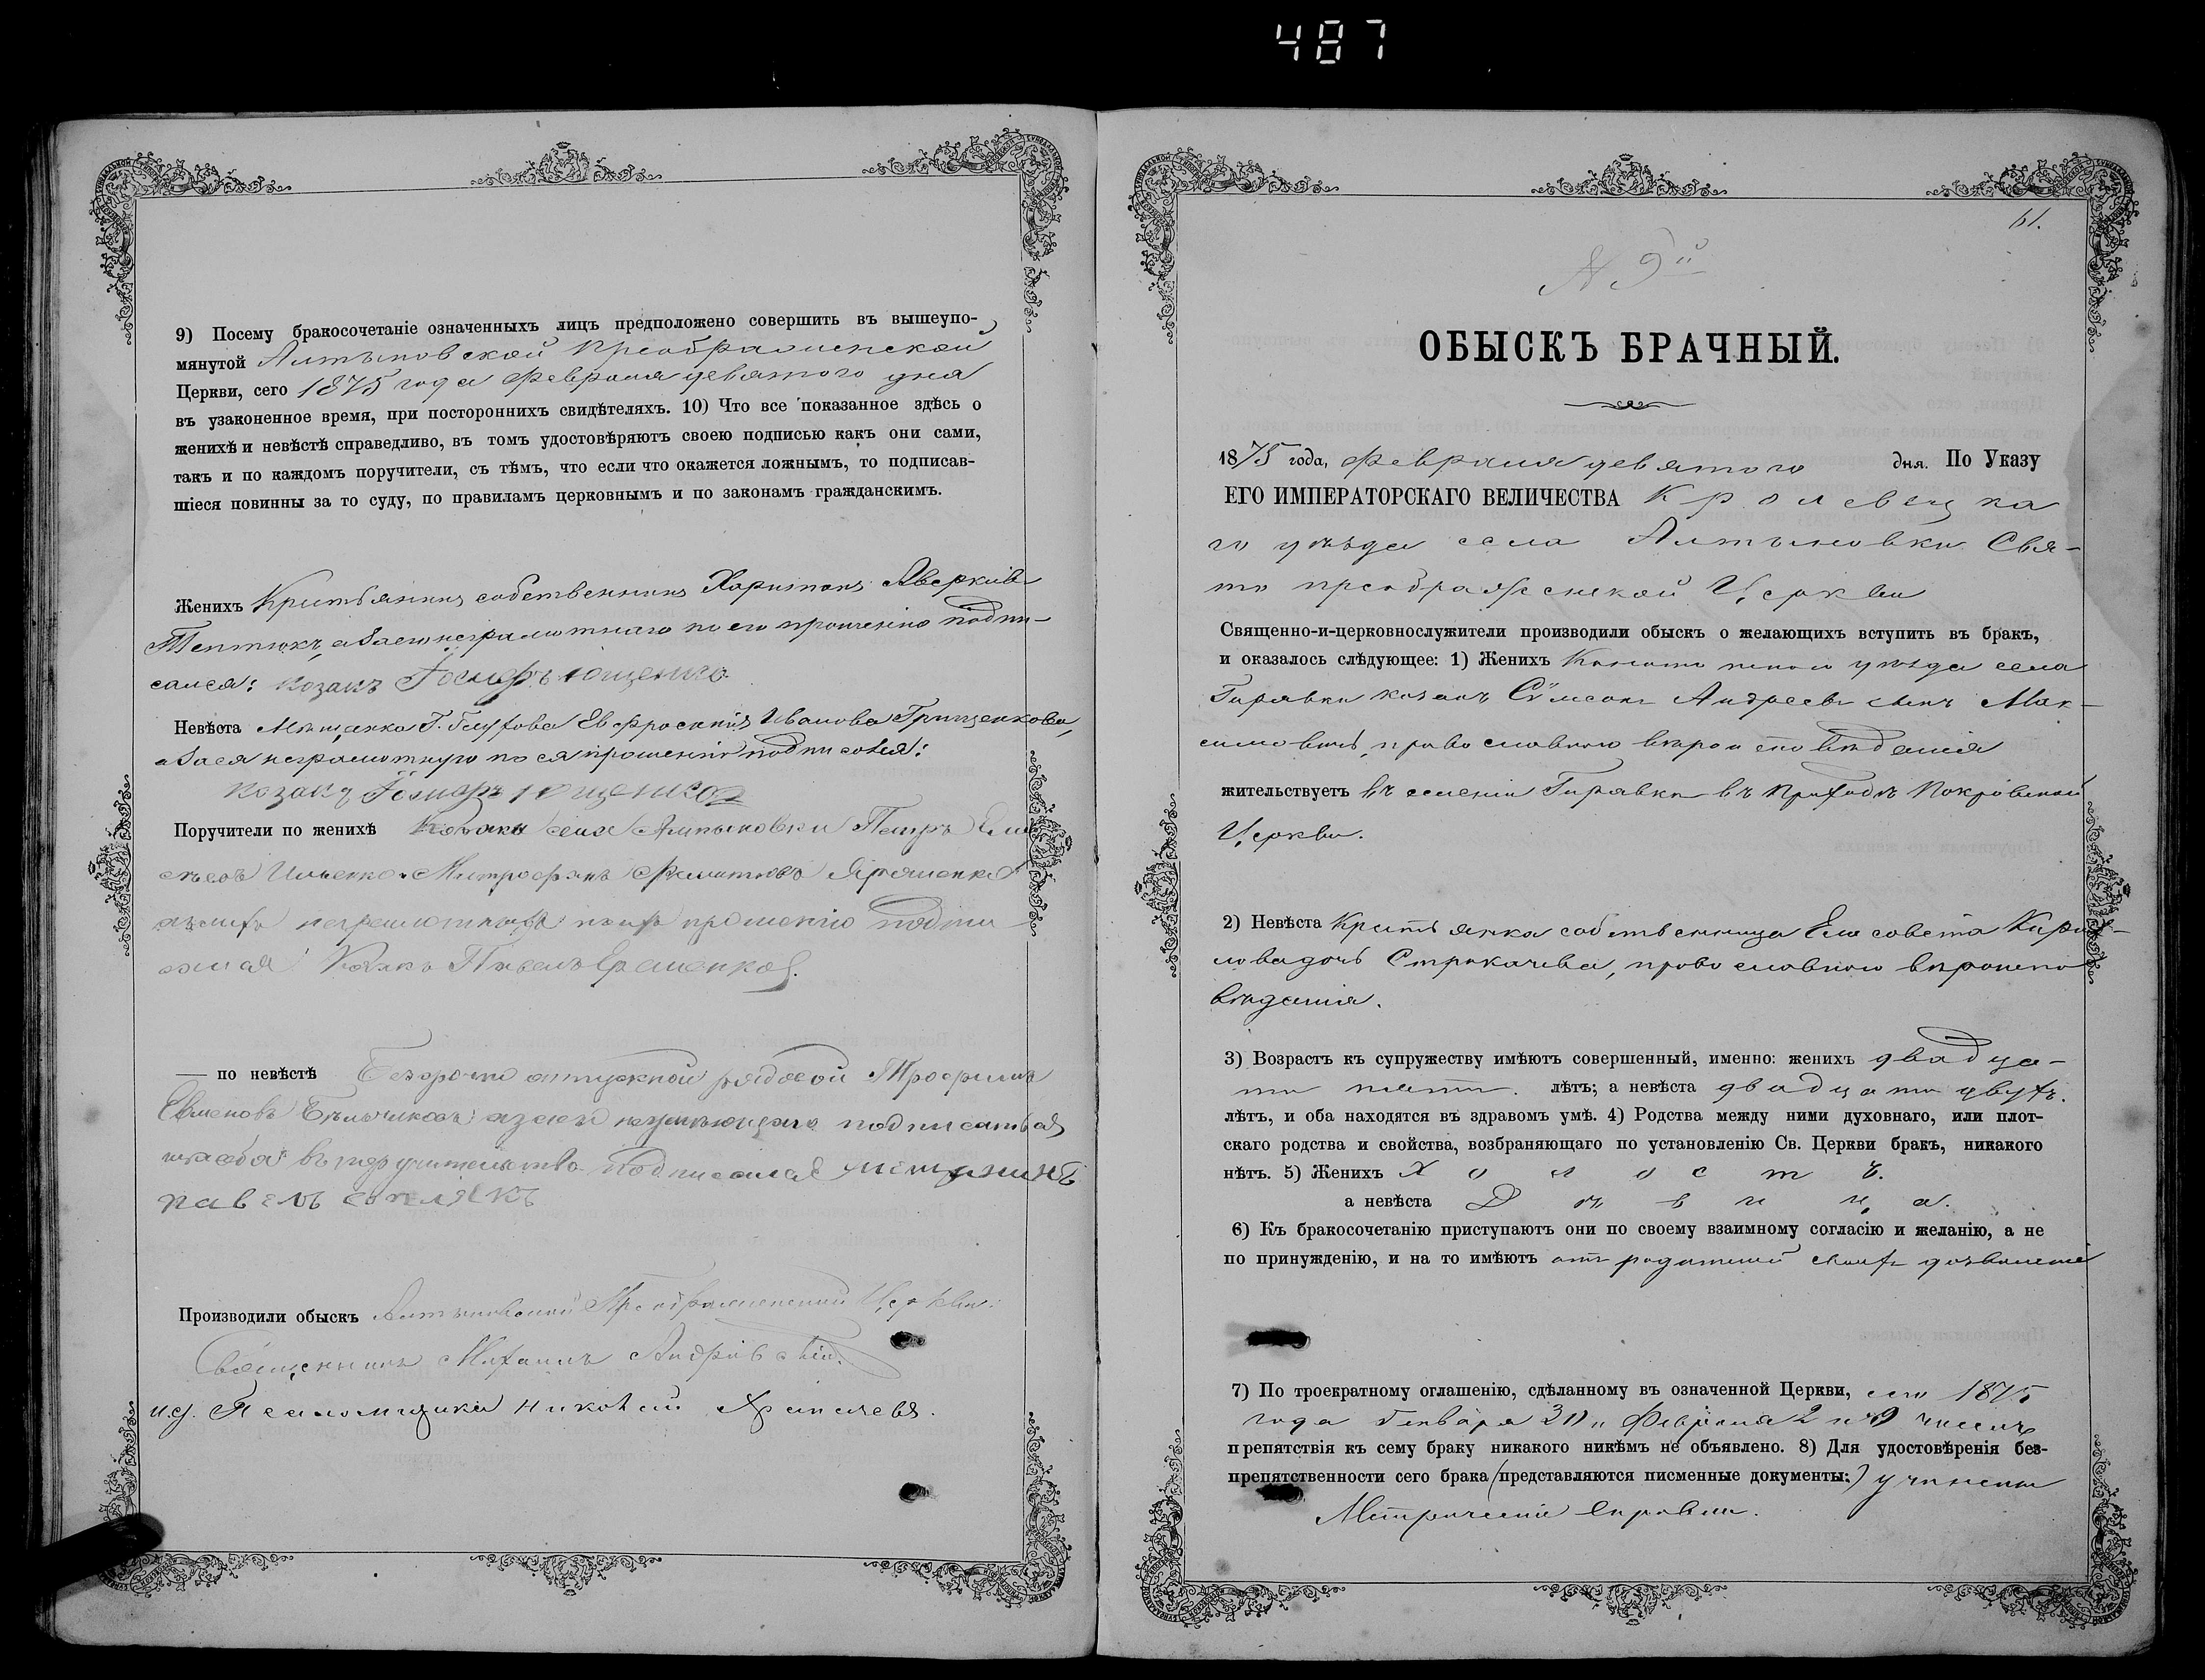 487
9) Посему бракосочетаніе означенныхъ лицъ предположено совершить въ вышеупо-
мянутой Алтыновской Преображенской
Церкви, сего 1875 года февраля девятого дня
въ узаконенное время, при постороннихъ свидѣтеляхъ. 10) Что все показанное здѣсь о
женихѣ и невѣстѣ справедливо, въ томъ удостовѣряютъ своею подписью какъ они сами,
такъ и по каждомъ поручители, съ тѣмъ, что если что окажется ложнымъ, то подписав-
шіеся повинны за то суду, по правиламъ церковнымъ и по законамъ гражданскимъ.
Женихъ Крестьянинъ собственникъ Харитонъ Аверкіевъ
а за его неграмотнаго по его прошенію подпи-
сался: козакъ Ющенко
Невѣста Мѣщанка Г. Глухова Евфросинія Иванова Грищенкова,
а за ея неграмотную по ея прошенію подписался:
козакъ Ющенко
Поручители по женихѣ Козаки села Алтыновки Петръ
Ильенко Митрофанъ
неграмотныхъ по ихъ прошенію подпи
Козакъ Павелъ Еременко
— по невѣстѣ Безсрочно отпускной рядовой Трофимъ
подписаться
въ поручительство подписался мещанинъ
павелъ
Производили обыскъ Алтыновской Преображенской Церкви:
Священникъ Михаилъ
и.д. Псаломщика Николай
61.
N 9й
ОБЫСКЪ БРАЧНЫЙ.
1875 года, Февраля девятого дня. По Указу
ЕГО ИМПЕРАТОРСКАГО ВЕЛИЧЕСТВА Кролевецка
го уѣзда села Алтыновки Свя-
то преображенской Церкви
Священно-и-церковнослужители производили обыскъ о желающихъ вступить въ бракъ,
и оказалось слѣдующее: 1) Женихъ Конотопскаго уѣзда села
Гирявки козакъ Сѵмеонъ Андреевъ сынъ Мак-
симовичъ, православнаго вѣроисповѣданія
жительствуетъ въ селеніи Гирявки въ приходѣ Покровской
Церкви.
2) Невѣста Крестьянка собственница Елисавета Кирил-
лова дочь Строкачева, православнаго вѣроиспо
вѣданія.
3) Возрастъ къ супружеству имѣютъ совершенный, именно: женихъ двадца-
ти пяти лѣтъ; а невѣста двадцати двухъ.
лѣтъ, и оба находятся въ здравомъ умѣ. 4) Родства между ними духовнаго, или плот-
скаго родства и свойства, возбраняющаго по установленію Св. Церкви бракъ, никакого
нѣтъ. 5) Женихъ Холостъ.
а невѣста Дѣвица.
6) Къ бракосочетанію приступаютъ они по своему взаимному согласію и желанію, а не
по принужденію, и на то имѣютъ отъ родителей своихъ дозволеніе
7) По троекратному оглашенію, сдѣланному въ означенной Церкви, сего 1875
года Генваря 30 и Февраля 2 и 9 числъ
препятствія къ сему браку никакого никѣмъ не объявлено. 8) Для удостовѣренія без-
препятственности сего брака (представляются писменные документы:) учинены
Метрическіе справки.